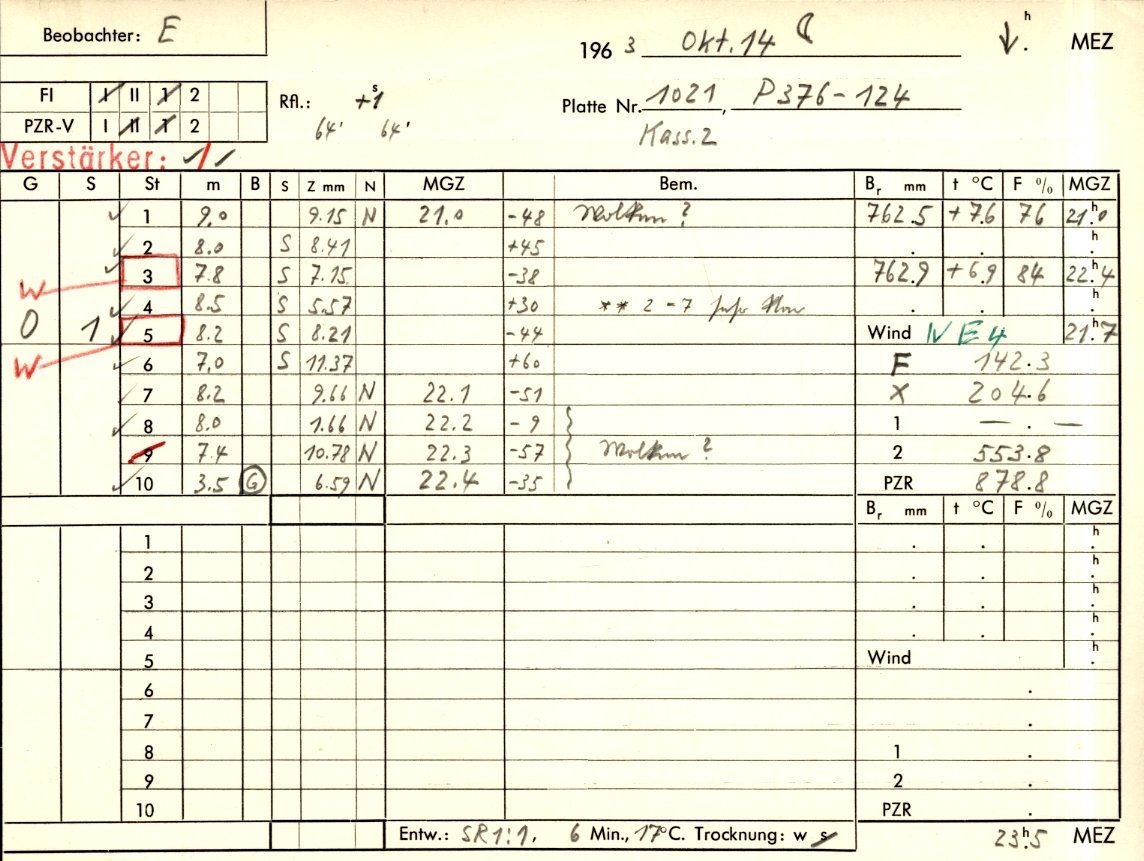 Beobachter: E
196 3 Okt. 14 h MEZ
FI I II 1 2
PZR-V I II 1 2
Rfl.: +1 s
64' 64'
Platte Nr. 1021, P376-124
Kass. 2
Verstärker:
G S St m B S Z mm N MGZ Bem. Br mm t °C F % MGZ
1 9.0 9.15 N 21.0 -48 Wolken? 762.5 +7.6 76 21h.0
2 8.0 S 8.41 +45 . . h
W 3 7.8 S 7.15 -38 762.9 +6.9 84 22h.4
4 8.5 S 5.57 +30 ** 2-7 . . h
0 1 5 8.2 S 8.21 -44 Wind NE4 21h.7
W 6 7.0 S 11.37 +60 F 142.3
7 8.2 9.66 N 22.1 -51 X 204.6
8 8.0 1.66 N 22.2 -9 1 — . —
9 7.4 10.78 N 22.3 -57 Wolken? 2 553.8
10 3.5 G 6.59 N 22.4 -35 PZR 878.8
Br mm t °C F % MGZ
1 . . h
2 . . h
3 . . h
4 . . h
5 Wind h
6 .
7 .
8 1 .
9 2 .
10 PZR .
Entw.: SR1:1, 6 Min., 17°C. Trocknung: w s 23h.5 MEZ